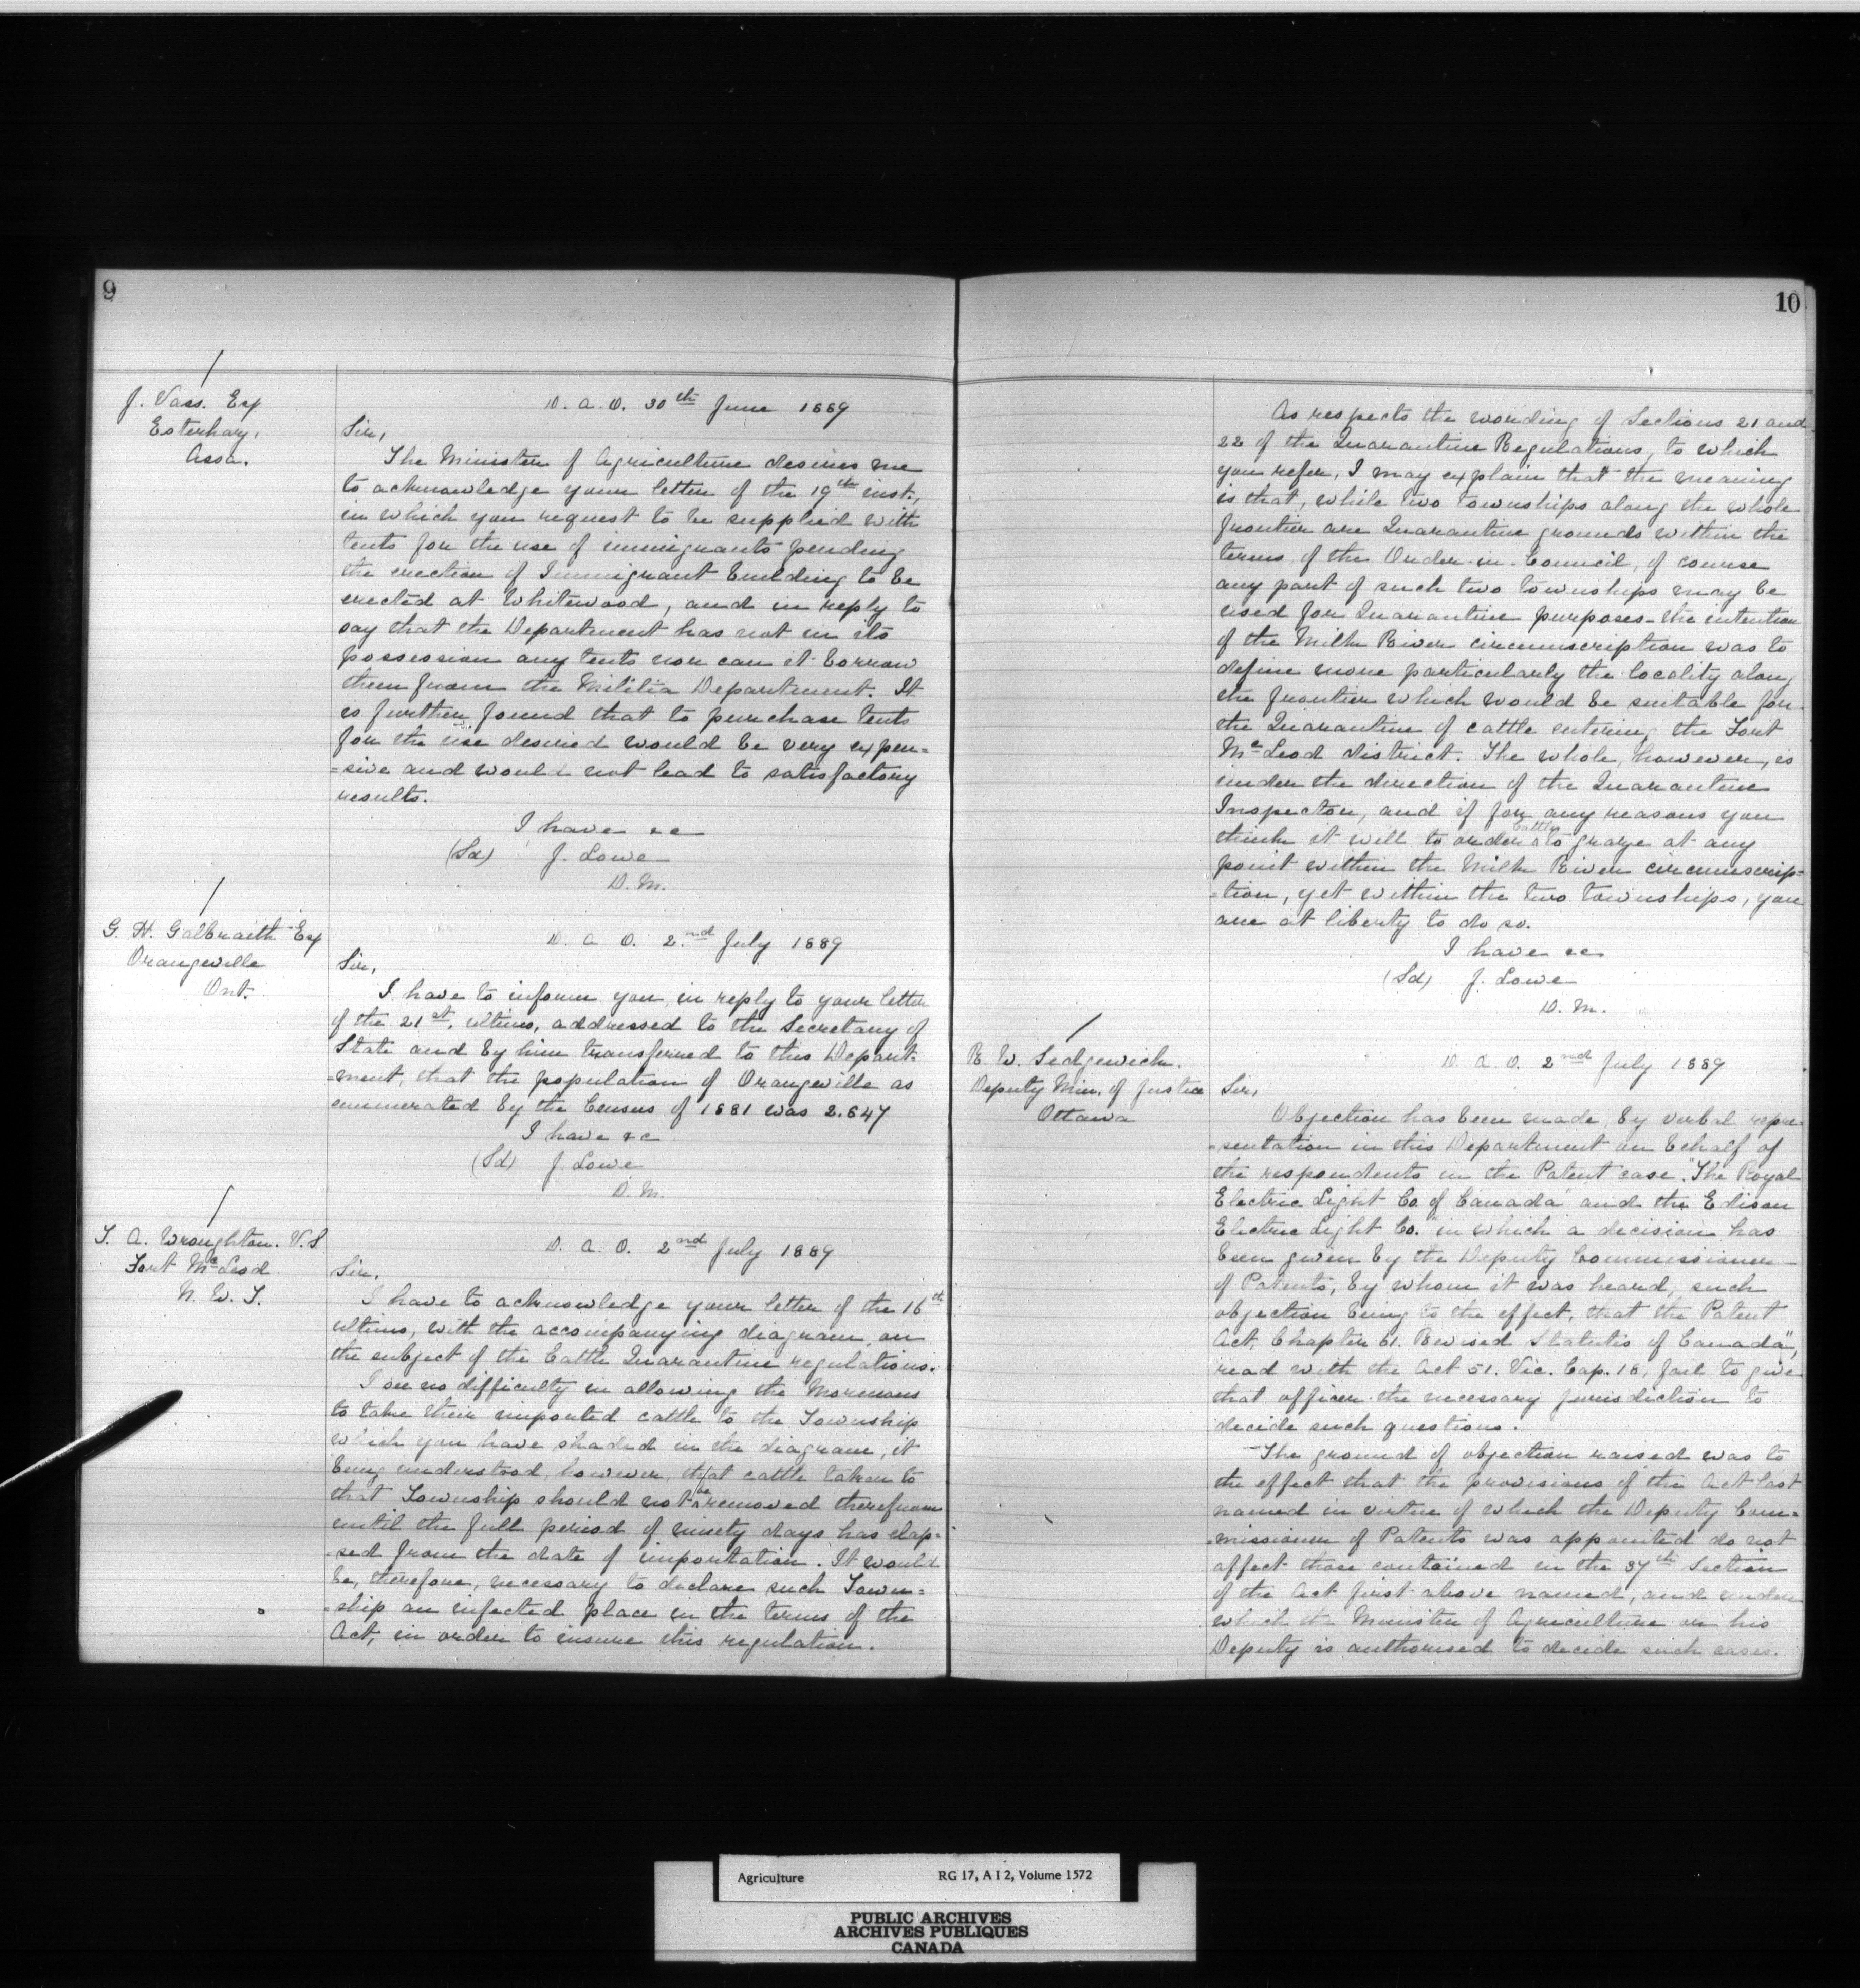 9
J. Vass. Esq
Esterhazy,
Assa.
D. A. O. 30th June 1889
Sir,
The Minister of Agriculture desires me
to acknowledge your letter of the 19th inst.,
in which you request to be supplied with
tents for the use of immigrants pending
the erection of Immigrant building to be
erected at Whitewood, and in reply to
say that the Department has not in its
possession any tents nor can it borrow
them from the Militia Department. It
is further found that to purchase tents
for the use desired would be very expen=
=sive and would not lead to satisfactory
results.
I have &c
(Sd) J. Lowe
D. M.
G. H. Galbraith Esq
Orangeville
Ont.
D. A. O. 2nd July 1889
Sir,
I have to inform you, in reply to your letter
of the 21st. ultimo, addressed to the Secretary of
State and by him transferred to this Depart-
-ment, that the population of Orangeville as
enumerated by the Census of 1881 was 2.847
I have &c
(Sd) J Lowe
D. M.
T. A. Wroughton. V.S.
Fort McLeod
N. W. T.
D. A. O. 2nd July 1889
Sir.
I have to acknowledge your letter of the 16th
ultimo, with the accompanying diagram, on
the subject of the Cattle Quarantine regulations.
I see no difficulty in allowing the Mormons
to take their imported cattle to the Township
which you have shaded in the diagram, it
being understood, however, that cattle taken to
that Township should not be removed therefrom
until the full period of ninety days has elap=
=sed from the date of importation. It would
be, therefore, necessary to declare such Town=
=ship an infected place in the terms of the
Act, in order to insure this regulation.
10
As respects the wording of Sections 21 and
22 of the Quarantine Regulations, to which
you refer, I may explain that the meaning
is that, while two townships along the whole
frontier are Quarantine grounds within the
terms of the Order-in-Council, of course
any part of such two townships may be
used for Quarantine purposes - the intention
of the Milk River circumscription was to
define more particularly the locality along
the frontier which would be suitable for
the Quarantine of cattle entering the Fort
McLeod District. The whole, however, is
under the direction of the Quarantine
Inspector, and if for any reasons you
think it well to order cattle to graze at any
point within the Milk River circumscrip=
=tion, yet within the two townships, you
are at liberty to do so.
I have &c
(Sd) J. Lowe
D. M.
R. W. Sedgewick.
Deputy Min. of Justice
Ottawa
D. A. O. 2nd July 1889
Sir,
Objection has been made, by verbal repre=
=sentation in this Department on behalf of
the respondents in the Patent case "The Royal
Electric Light Co. of Canada" and the Edison
Electric Light Co." in which a decision has
been given by the Deputy Commissioner
of Patents, by whom it was heard, such
objection being to the effect, that the Patent
Act, Chapter 61. Revised Statutes of Canada",
read with the Act 51. Vic. Cap. 18, fail to give
that officer the necessary jurisdiction to
decide such questions.
The ground of objection raised was to
the effect that the provisions of the Act last
named in virtue of which the Deputy Com=
=missioner of Patents was appointed do not
affect those contained in the 37th Section
of the Act first above named, and under
which the Minister of Agriculture or his
Deputy is authorised to decide such cases.
Agriculture RG 17, A I 2, Volume 1572
PUBLIC ARCHIVES
ARCHIVES PUBLIQUES
CANADA